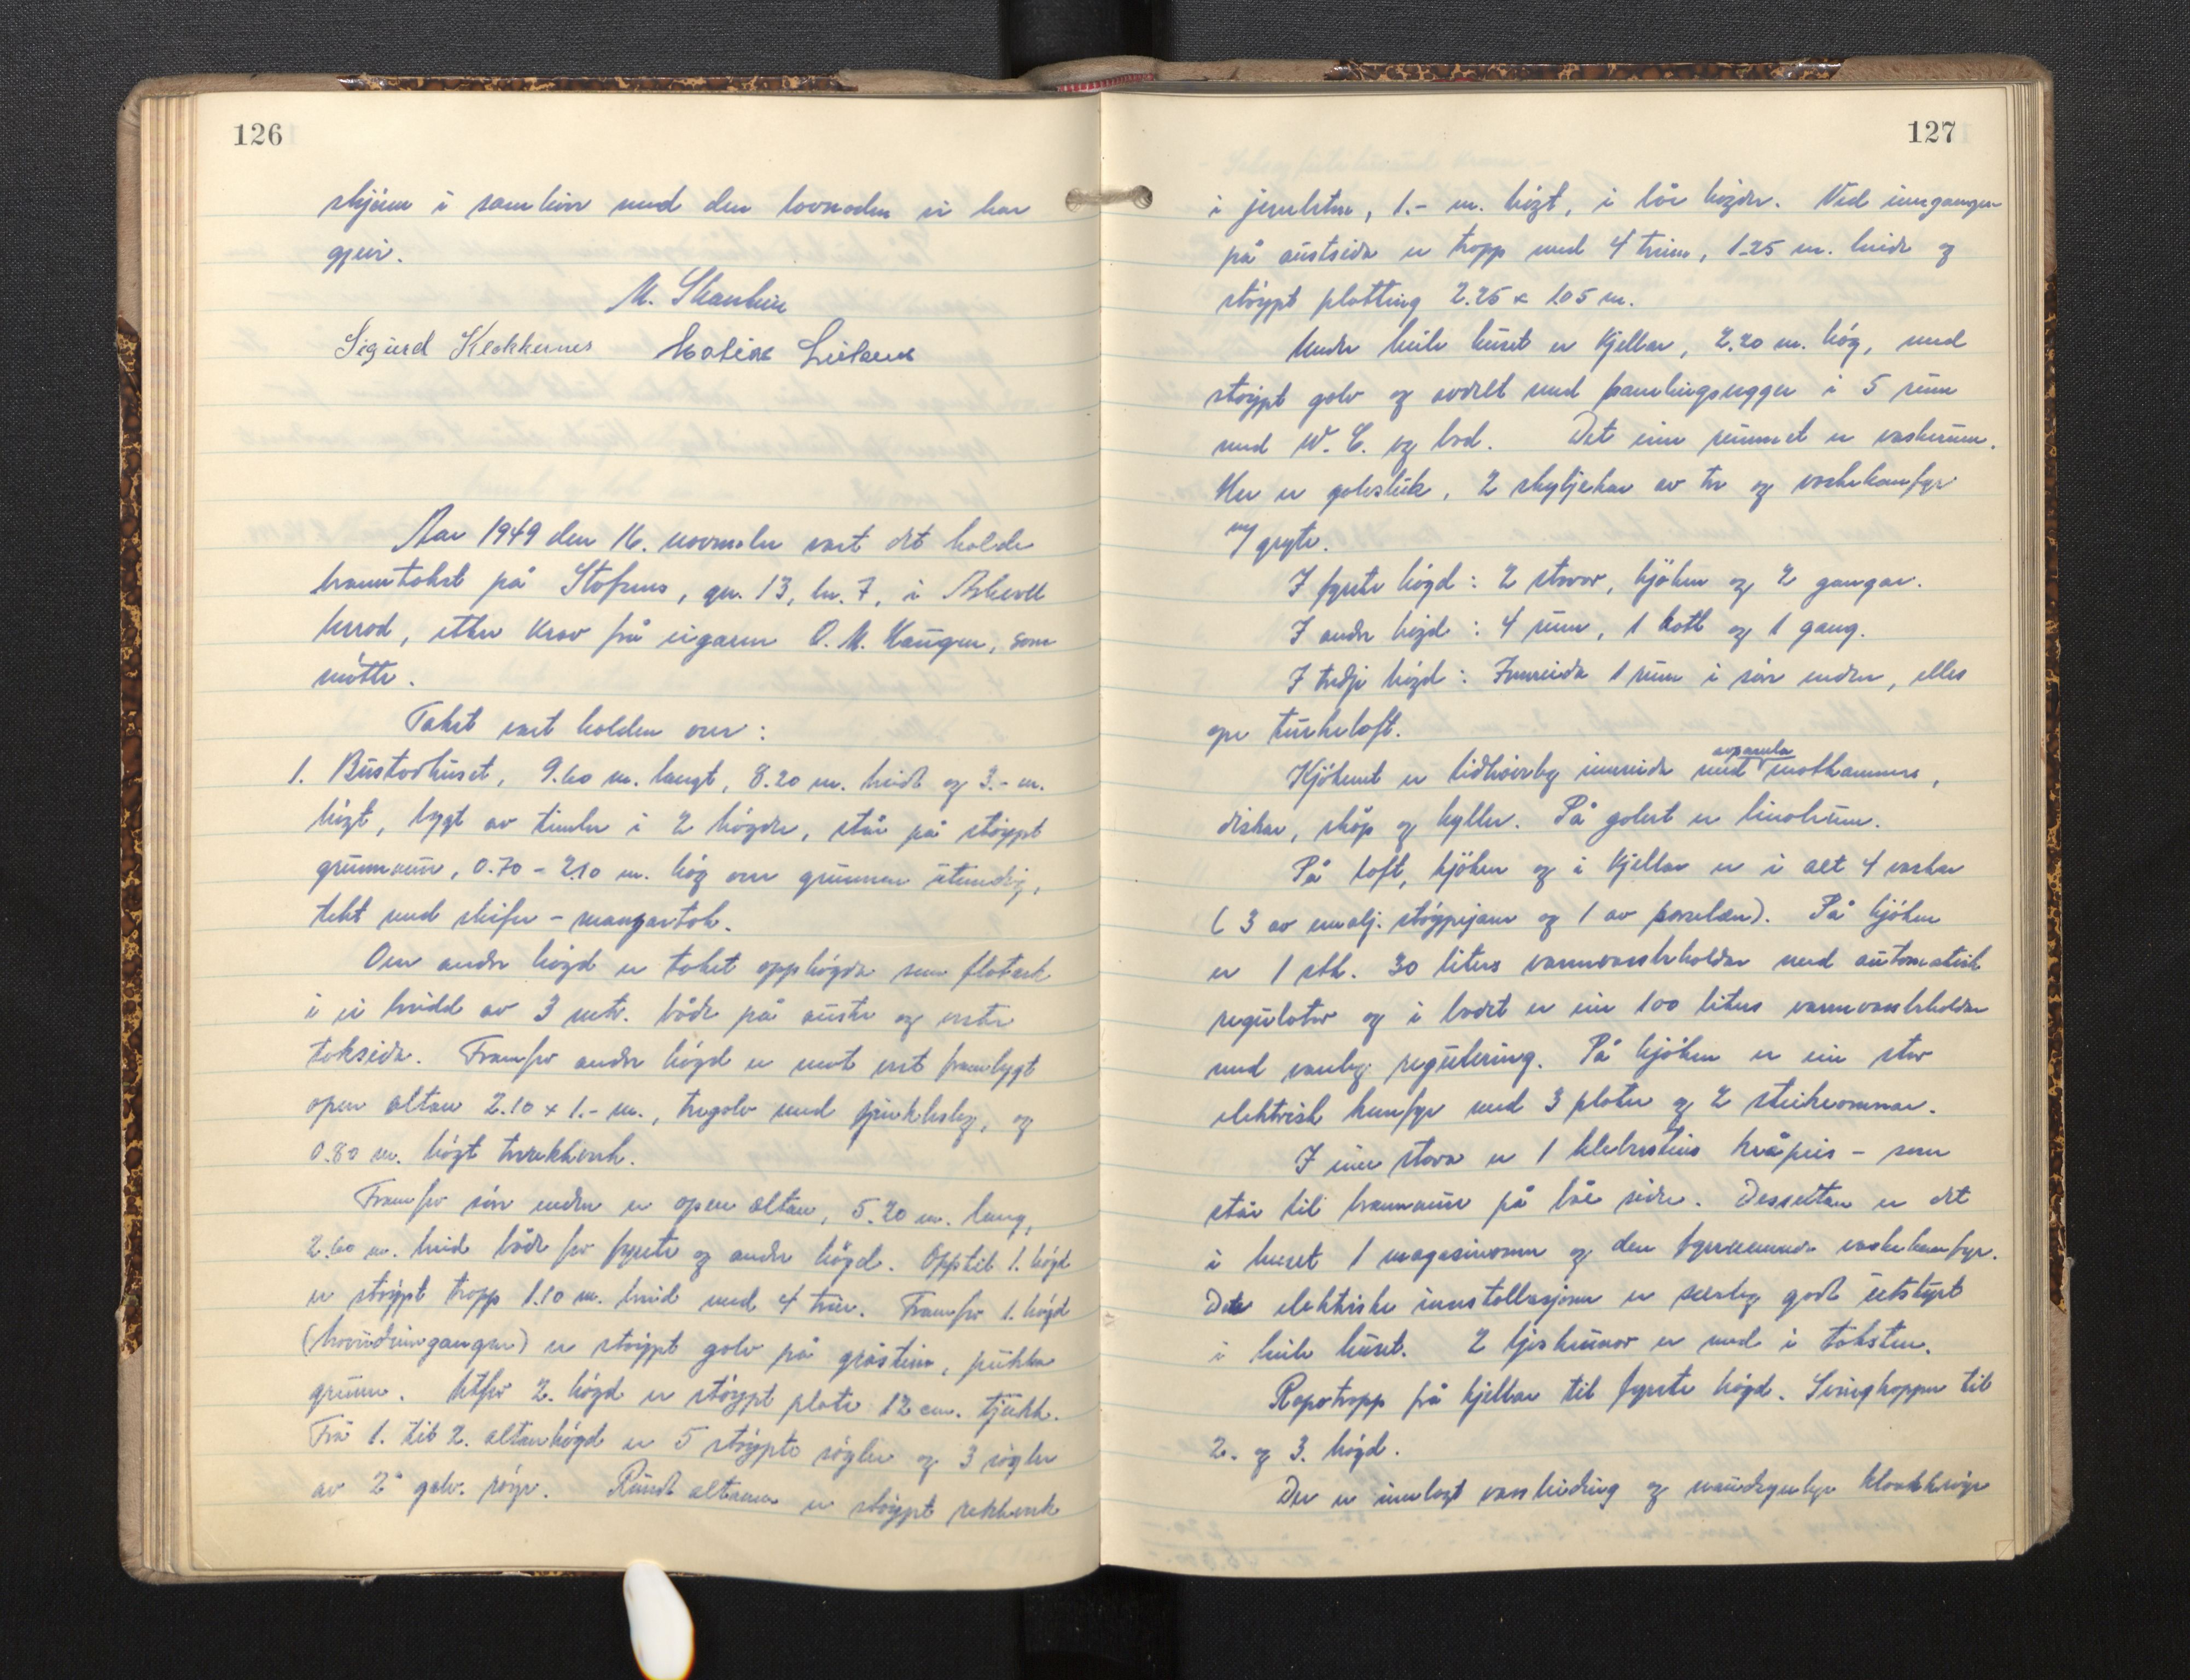 126
skjøn i samhøve med den lovnaden vi har
gjeve.
M. Skanheim
Sigurd Klokkernes Matias Lieland
Aar 1949 den 16. november vart det halde
branntakst på Stofsnes, gn. 13, bn. 7, i Askvoll
herad, etter krav frå eigaren O. M. Haugen, som
møtte.
Takst vart halden over:
1. Bustadhuset, 9.60 m. langt, 8.20 m. breidt og 3.- m.
høgt, bygt av timber i 2 høgder, står på støypt
grunnmur, 0.70 - 2.10 m. høg over grunnen utvendig,
tekt med skifer - mansartak.
Over andre høgd er taket opphøgda som flatark
i ei breidd av 3 mtr. både på austre og vestre
takside. Framfor andre høgd er mot vest frambygt
open altan 2.10 x 1.- m., tregolv med sinkbeleg, og
0.80 m. høgt trerekkverk.
Framfor søre enden er open altan, 5.20 m. lang,
2.60 m. breid både for fyrste og andre høgd. Opptil 1. høgd
er støypt tropp 1.10 m. breid med 4 trin. Framfor 1. høgd
(hovudinngangen) er støypt golv på gråstein, pukka
grunn. Utfor 2. høgd er støypt plate 12 cm. tjukk.
Frå 1. til 2. altanhøgd er 5 støypte søyler og 3 søyler
av 2" galv. røyr. Rundt altanen er støypt rekkverk
127
i jernbetong, 1.- m. høgt, i båe høgder. Ved inngangen
på austsida er tropp med 4 trinn, 1.25 m. breide og
støypt platting 2.25 x 1.05 m.
Under heile huset er kjellar, 2.20 m. høg, med
støypt golv og avdelt med samlingsveggar i 5 rum
med W. C. og bad. Det eine rummet er vaskerum.
Her er golvsluk, 2 skyljekar av tre og vaskekomfyr
m/ gryte.
I fyrste høgd: 2 stover, kjøken og 2 gangar.
I andre høgd: 4 rum, 1 kott og 1 gang.
I tredje høgd: Innreida 1 rum i søre enden, elles
ope turkeloft.
Kjøkenet er tidhøveleg innreida med avpanela matkammers,
diskar, skåp og hyller. På golvet er linoleum.
På loft, kjøken og i kjellar er i alt 4 vaskar
(3 av emalj. støypejarn og 1 av porselen). På kjøken
er 1 stk. 30 liters varmvassbeholdar med automatisk
regulator og i badet er ein 100 liters varmvassbeholdar
med vanleg regulering. På kjøken er ein stor
elektrisk komfyr med 3 plater og 2 steikeomnar.
I eine stova er 1 klebersteins kråpeis - som
står til brannmur på båe sider. Dessutan er det
i huset 1 magasinomn og den fyrrnemnde vaskekomfyr.
Den elektriske innstallasjonen er særleg godt utstyrt
i heile huset. 2 ljoskruner er med i taksten.
Rapetropp frå kjellar til fyrste høgd. Svingtropper til
2. og 3. høgd.
Der er innlagt vassleidning og naudsynlege kloakkrøyr